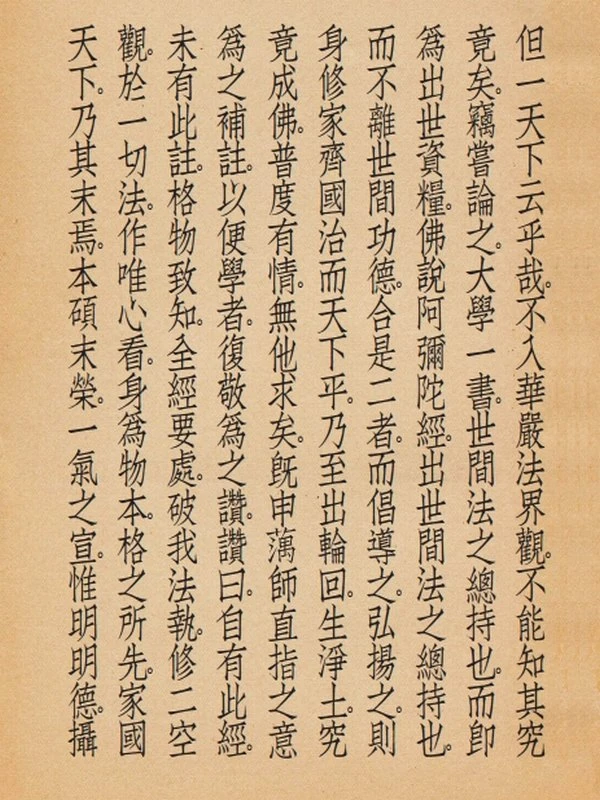 但一天下云乎哉。不入華嚴法界觀。不能知其究
竟矣。竊嘗論之。大學一書。世間法之總持也。而卽
爲出世資糧。佛說阿彌陀經。出世間法之總持也。
而不離世間功德。合是二者。而倡導之。弘揚之。則
身修家齊國治而天下平。乃至出輪回。生淨土。究
竟成佛。普度有情。無他求矣。旣申澫師直指之意
爲之補註。以便學者。復敬爲之讚。讚曰。自有此經。
未有此註。格物致知。全經要處。破我法執。修二空
觀。於一切法。作唯心看。身爲物本。格之所先。家國
天下。乃其末焉。本碩末榮。一氣之宣。惟明明德。攝